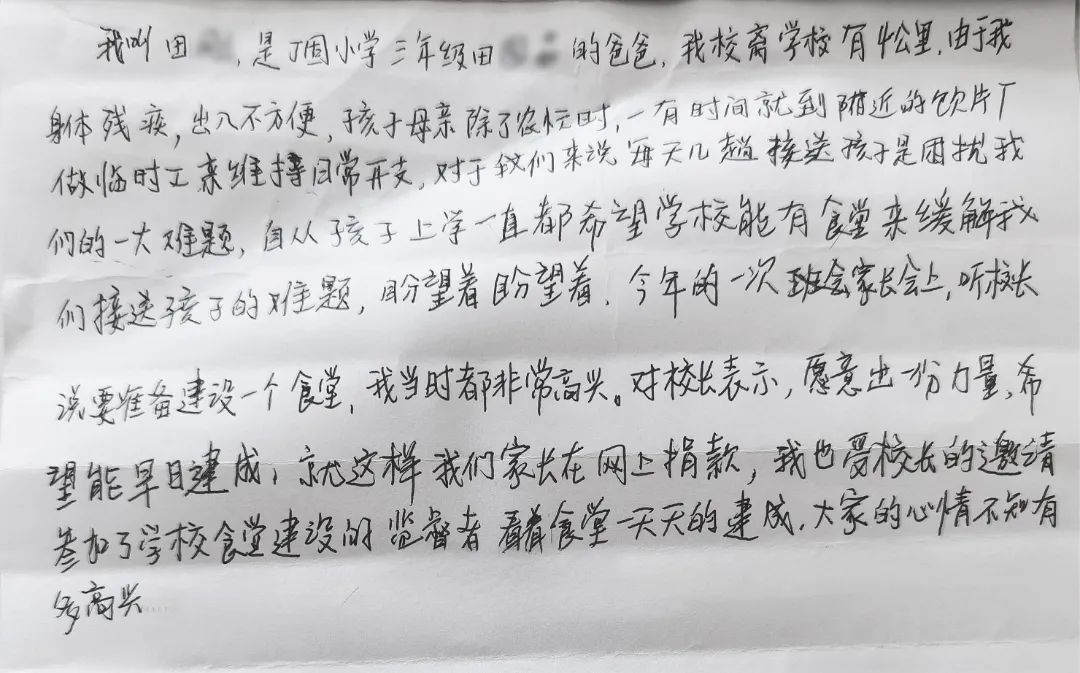 我叫田 ，是丁固小学三年级田 的爸爸，我校离学校有4公里，由于我
身体残疾，出入不方便，孩子母亲除了农忙时，一有时间就到附近的饮片厂
做临时工来维持日常开支，对于我们来说每天几趟接送孩子是困扰我
们的一大难题，自从孩子上学一直都希望学校能有食堂来缓解我
们接送孩子的难题，盼望着盼望着，今年的一次班会家长会上，听校长
说要准备建设一个食堂，我当时都非常高兴。对校长表示，愿意出一份力量，希
望能早日建成，就这样我们家长在网上捐款，我也受校长的邀请
参加了学校食堂建设的监督者 看着食堂一天天的建成，大家的心情不知有
多高兴